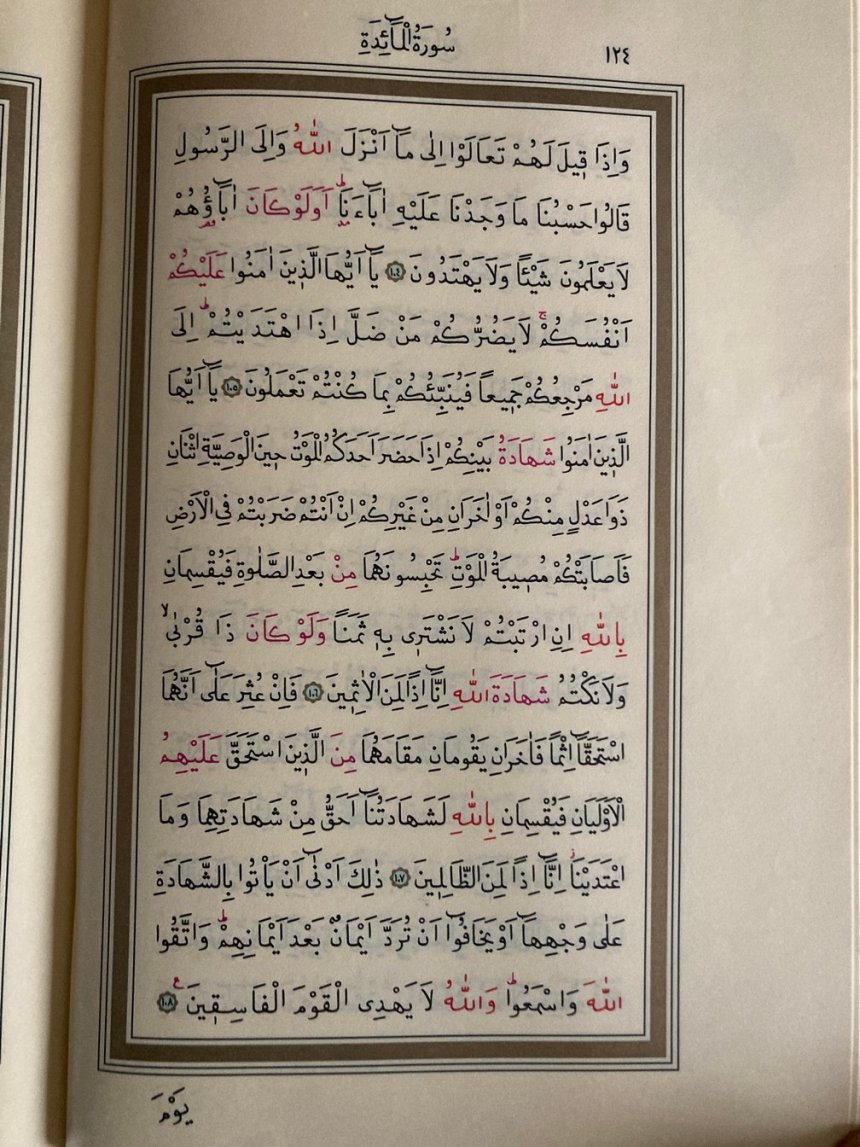 سُورَةُ الْمَٓائِدَةِ
١٢٤
وَاِذَا قٖيلَ لَهُمْ تَعَالَوْا اِلٰى مَٓا اَنْزَلَ اللّٰهُ وَاِلَى الرَّسُولِ
قَالُوا حَسْبُنَا مَا وَجَدْنَا عَلَيْهِ اٰبَٓاءَنَاۜ اَوَلَوْ كَانَ اٰبَٓاؤُ۬هُمْ
لَا يَعْلَمُونَ شَيْـًٔا وَلَا يَهْتَدُونَ ﴿١٠٤﴾ يَٓا اَيُّهَا الَّذٖينَ اٰمَنُوا عَلَيْكُمْ
اَنْفُسَكُمْۚ لَا يَضُرُّكُمْ مَنْ ضَلَّ اِذَا اهْتَدَيْتُمْۜ اِلَى
اللّٰهِ مَرْجِعُكُمْ جَمٖيعاً فَيُنَبِّئُكُمْ بِمَا كُنْتُمْ تَعْمَلُونَ ﴿١٠٥﴾ يَٓا اَيُّهَا
الَّذٖينَ اٰمَنُوا شَهَادَةُ بَيْنِكُمْ اِذَا حَضَرَ اَحَدَكُمُ الْمَوْتُ حٖينَ الْوَصِيَّةِ اثْنَانِ
ذَوَا عَدْلٍ مِنْكُمْ اَوْ اٰخَرَانِ مِنْ غَيْرِكُمْ اِنْ اَنْتُمْ ضَرَبْتُمْ فِي الْاَرْضِ
فَاَصَابَتْكُمْ مُصٖيبَةُ الْمَوْتِۜ تَحْبِسُونَهُمَا مِنْ بَعْدِ الصَّلٰوةِ فَيُقْسِمَانِ
بِاللّٰهِ اِنِ ارْتَبْتُمْ لَا نَشْتَرٖي بِهٖ ثَمَناً وَلَوْ كَانَ ذَا قُرْبٰىۙ
وَلَا نَكْتُمُ شَهَادَةَ اللّٰهِ اِنَّٓا اِذاً لَمِنَ الْاٰثِمٖينَ ﴿١٠٦﴾ فَاِنْ عُثِرَ عَلٰٓى اَنَّهُمَا
اسْتَحَقَّٓا اِثْماً فَاٰخَرَانِ يَقُومَانِ مَقَامَهُمَا مِنَ الَّذٖينَ اسْتَحَقَّ عَلَيْهِمُ
الْاَوْلَيَانِ فَيُقْسِمَانِ بِاللّٰهِ لَشَهَادَتُنَٓا اَحَقُّ مِنْ شَهَادَتِهِمَا وَمَا
اعْتَدَيْنَاۘ اِنَّٓا اِذاً لَمِنَ الظَّالِمٖينَ ﴿١٠٧﴾ ذٰلِكَ اَدْنٰٓى اَنْ يَأْتُوا بِالشَّهَادَةِ
عَلٰى وَجْهِهَٓا اَوْ يَخَافُٓوا اَنْ تُرَدَّ اَيْمَانٌ بَعْدَ اَيْمَانِهِمْۜ وَاتَّقُوا
اللّٰهَ وَاسْمَعُواۜ وَاللّٰهُ لَا يَهْدِي الْقَوْمَ الْفَاسِقٖينَ ﴿١٠٨﴾ ع
يَوْمَ